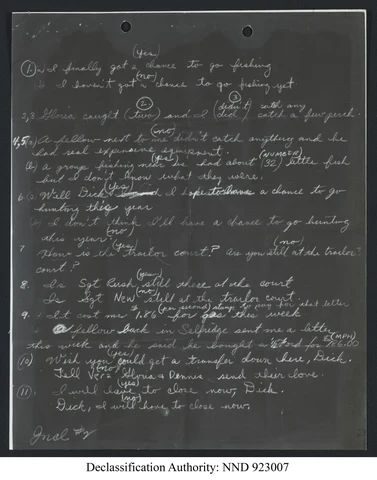 (yes)
(1.) a) I finally got a chance to go fishing
(no)
b) I haven't got a chance to go fishing yet.
(2) (3)
2,3 Gloria caught (two) and I (didn't) catch any
did catch a few perch.
(no)
4,5, (a) A fellow next to me didn't catch anything and he
had real expensive equipment.
(yes) (NUMBER)
(b) a group fishing near me had about (32) little fish
but I don't know what they were.
(yes)
6. (a) Well Dick, I hope to have a chance to go
hunting this year
b) I don't think I'll have a chance to go hunting
this year. (no)
(yes) (no)
7. How is the trailor court? Are you still at the trailor
court?
(yes)
8. Is Sgt Rush still there at the court
(no)
Is Sgt New still at the trailor court
9. It cost me 1.86 for gas this week
a fellow back in Selfridge sent me a letter
(MPH)
this week and he said he bought a Ford for 86.00
(yes)
(10) Wish you could get a transfer down here, Dick.
(no)
Tell Vera Gloria & Dennis send their love.
(yes)
(11) I will have to close now, Dick.
(no)
Dick, I will have to close now.
Incl #2
Declassification Authority: NND 923007